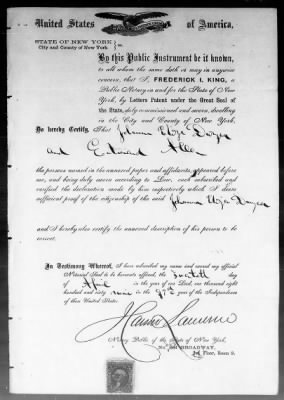 United States of America,
STATE OF NEW YORK
City and County of New York
ss.
By this Public Instrument be it known,
to all whom the same doth or may in anywise
concern, that I, FREDERICK I. KING, a
Public Notary in and for the State of New
York, by Letters Patent under the Great Seal of
the State, duly commissioned and sworn, dwelling
in the City and County of New York,
Do hereby Certify, That
and Edward
the persons named in the annexed paper and affidavits, appeared before
me, and being duly sworn according to Law, each subscribed and
verified the declaration made by him respectively which I deem
sufficient proof of the citizenship of the said
And I hereby also certify the annexed description of his person to
be correct.
In Testimony Whereof, I have subscribed my name and caused my official
Notarial Seal to be hereunto affixed, the day
of April in the year of our Lord, one thousand eight
hundred and sixty nine in the of the Independence
of these United States.
Notary Public of the State of New York,
BROADWAY,
Floor, Room 9.